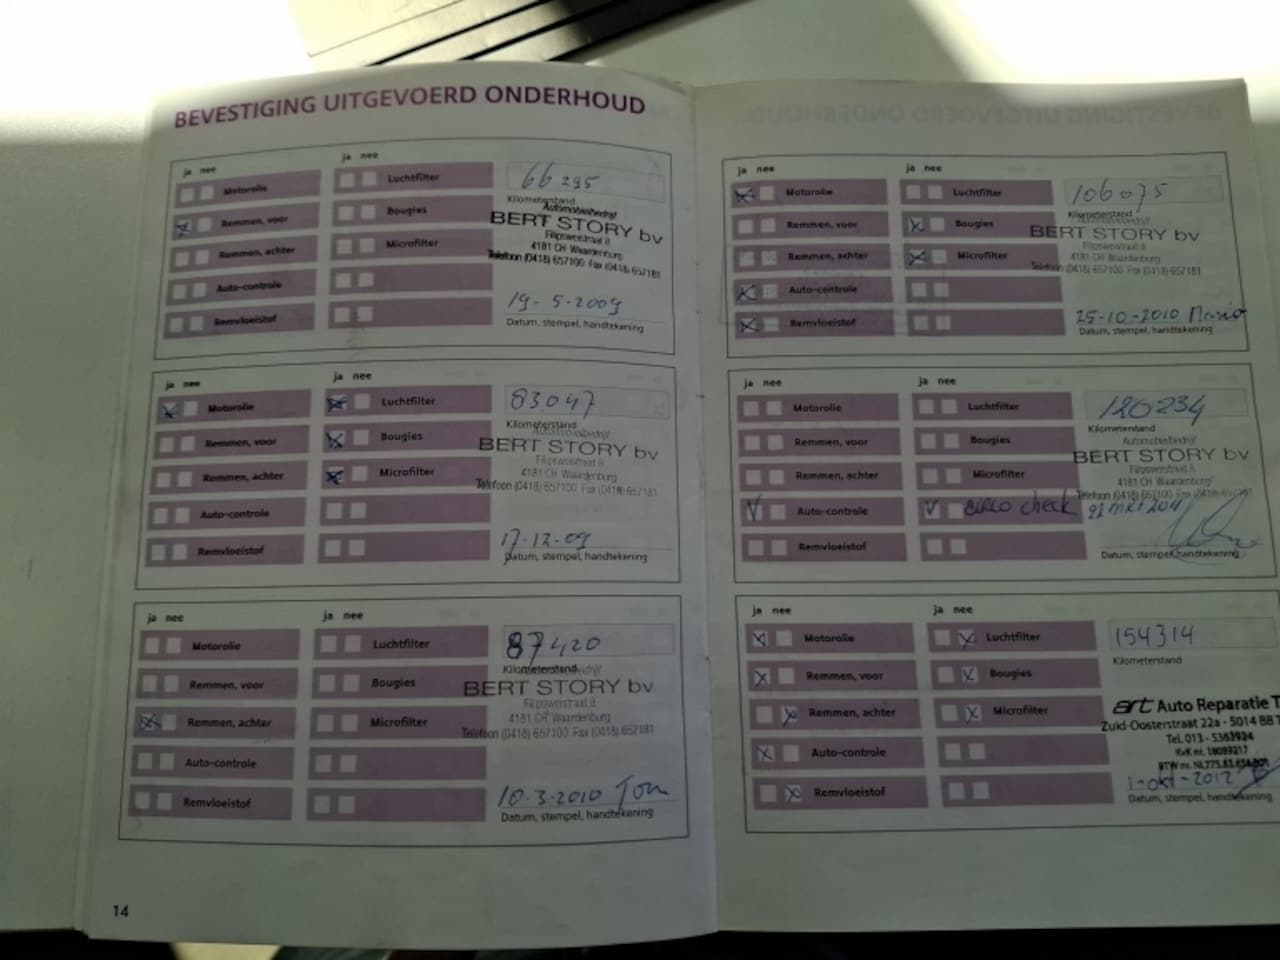 BEVESTIGING UITGEVOERD ONDERHOUD
ja nee
ja nee
Motorolie
Luchtfilter
66295
Kilometerstand
Remmen, voor
Bougies
Automobielbedrijf
BERT STORY bv
Remmen, achter
Microfilter
4181 CH Waardenburg
Telefoon (0418) 657100 Fax (0418) 657181
Auto-controle
19-5-2009
Remvloeistof
Datum, stempel, handtekening
ja nee
ja nee
Motorolie
Luchtfilter
83047
Kilometerstand
Remmen, voor
Bougies
Automobielbedrijf
BERT STORY bv
Remmen, achter
Microfilter
4181 CH Waardenburg
Telefoon (0418) 657100 Fax (0418) 657181
Auto-controle
17-12-09
Remvloeistof
Datum, stempel, handtekening
ja nee
ja nee
Motorolie
Luchtfilter
87420
Kilometerstand
Remmen, voor
Bougies
BERT STORY bv
Remmen, achter
Microfilter
4181 CH Waardenburg
Telefoon (0418) 657100 Fax (0418) 657181
Auto-controle
10-3-2010 Tom
Remvloeistof
Datum, stempel, handtekening
14
ja nee
ja nee
Motorolie
Luchtfilter
106075
Kilometerstand
Remmen, voor
Bougies
Automobielbedrijf
BERT STORY bv
Remmen, achter
Microfilter
4181 CH Waardenburg
Telefoon (0418) 657100 Fax (0418) 657181
Auto-controle
25-10-2010
Remvloeistof
Datum, stempel, handtekening
ja nee
ja nee
Motorolie
Luchtfilter
120834
Kilometerstand
Remmen, voor
Bougies
Automobielbedrijf
BERT STORY bv
Remmen, achter
Microfilter
4181 CH Waardenburg
Telefoon (0418) 657100 Fax (0418) 657181
Auto-controle
check
Remvloeistof
Datum, stempel, handtekening
ja nee
ja nee
Motorolie
Luchtfilter
154314
Kilometerstand
Remmen, voor
Bougies
Remmen, achter
Microfilter
art Auto Reparatie T
Zuid-Oosterstraat 22a - 5014 BB T
Tel. 013 - 5363924
Auto-controle
1-okt-2012
Remvloeistof
Datum, stempel, handtekening